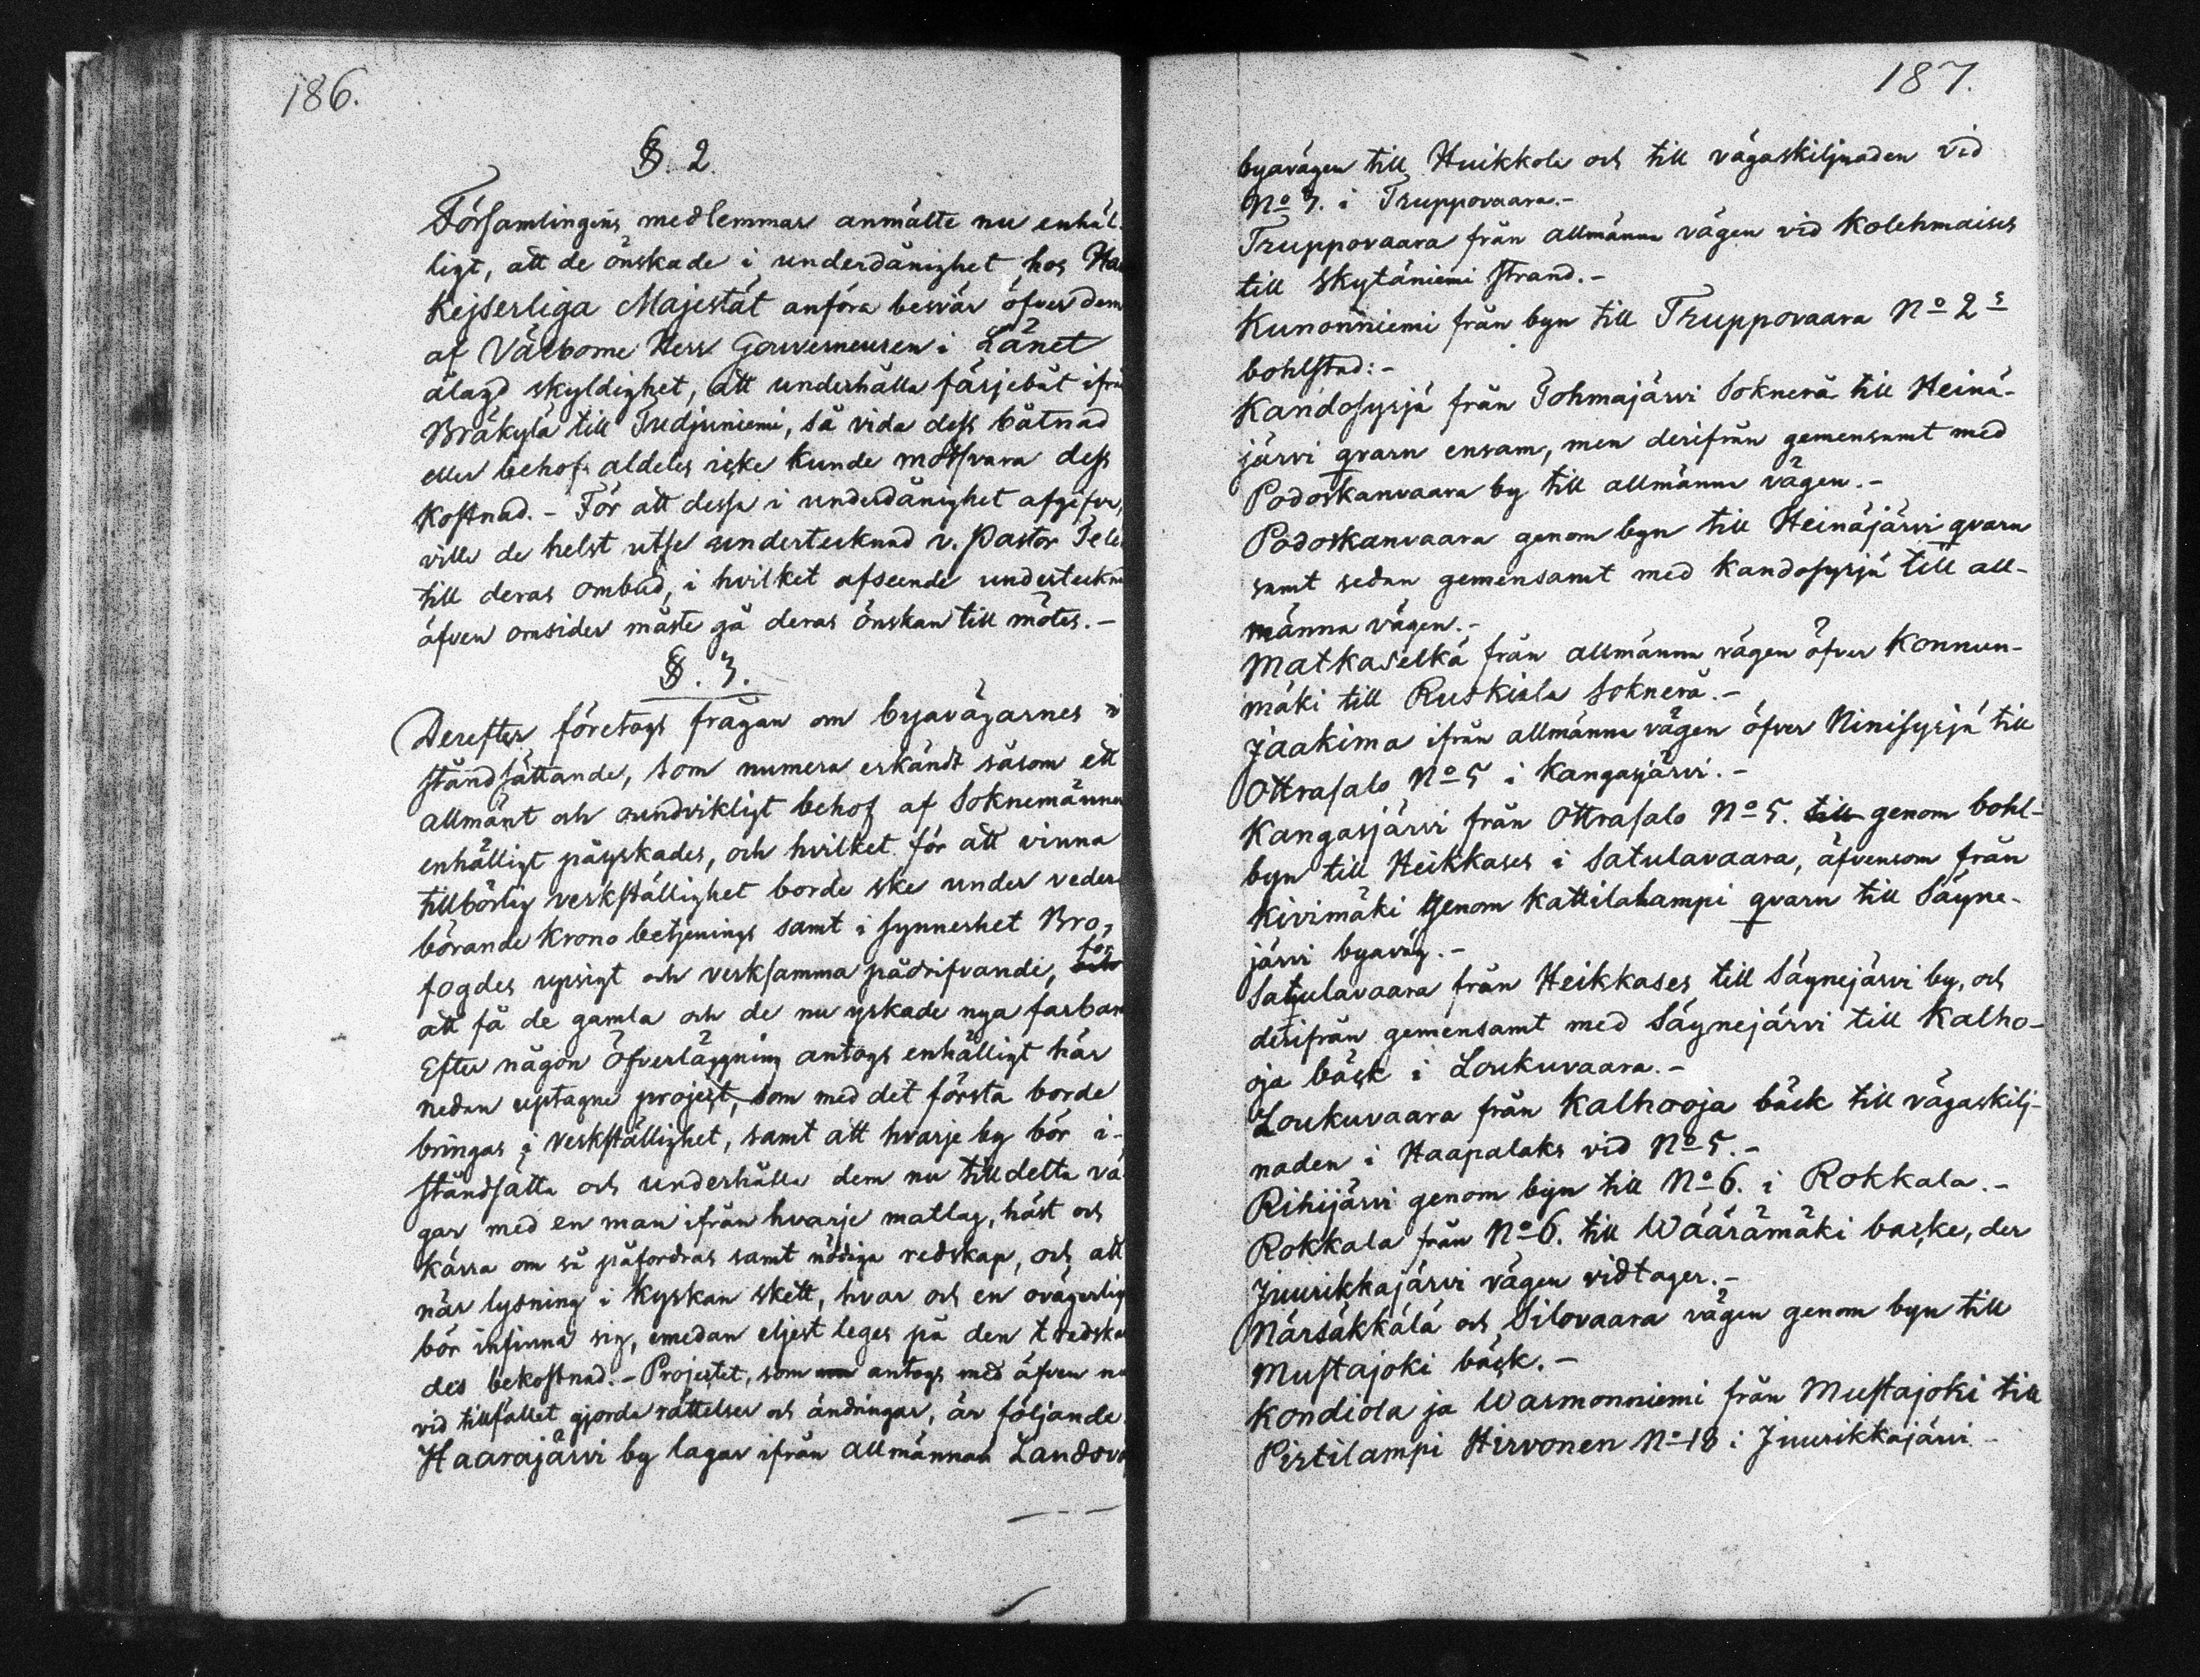 186.
§. 2.
Församlingens medlemmar anmälte nu enhäl-
ligt, att de önskade i underdånighet hos Ha
Kejserliga Majestät anföra besvär öfver dem
af Välborne Herr Gouverneuren i Länet
ålagd skyldighet, att underhålla färjebåt ifrå
Bråkylä till Tudjuniemi, så vida dess båtnad
eller behof aldeles icke kunde motsvara dess
kostnad. - För att dessa i underdånighet afgifva,
ville de helst utse undertecknad v. Pastor Tele
till deras ombud, i hvilket afseende underteckn
äfven omsider måste gå deras önskan till mötes. -
§. 3.
Derefter företogs frågan om byavägarnes i
ståndsättande, som numera erkändt såsom ett
allmänt och oundvikligt behof af Soknemännen
enhälligt påyrkades, och hvilket för att vinna
tillbörlig verkställighet borde ske under veder
börande Krono betjenings samt i synnerhet Bro,
fogdes upsigt och verksamma pådrifvande, för
att få de gamla och de nu yrkade nya farbar
Efter någon öfverläggning antogs enhälligt här
nedan uptagne project, som med det första borde
bringas i verkställighet, samt att hvarje by bör i-
ståndsätta och underhålla dem nu till detta vä
gar med en man ifrån hvarje matlag, häst och
kärra om så påfordras samt nödiga redskap, och att
när lysning i Kyrkan skett, hvar och en ovägerlig
bör infinna sig, emedan eljest leges på den tredska
des bekostnad. - Projectet, som antogs med äfven nu
vid tillfället gjorda rättelser och ändringar, är följande
Haarajärvi by lagar ifrån allmännan Landsvä
187.
byavägen till Huikkola och till vägaskiljnaden vid
No 3. i Truppovaara. -
Truppovaara från allmänna vägen vid Kolehmaises
till Skytäniemi strand. -
Kunonniemi från byn till Truppovaara No 2s
bohlstad: -
Kandosyrjä från Tohmajärvi Soknerå till Heinä-
järvi qvarn ensam, men derifrån gemensamt med
Podoskanvaara by till allmänna vägen. -
Podoskanvaara genom byn till Heinäjärvi qvarn
samt sedan gemensamt med Kandosyrjä till all-
männa vägen. -
Matkaselkä från allmänna vägen öfver Konnun-
mäki till Ruskiala Soknerå. -
Jaakima ifrån allmänna vägen öfver Niinisyrjä till
Ottrasalo No 5 i Kangasjärvi. -
Kangasjärvi från Ottrasalo No 5. till genom bohl-
byn till Heikkases i Satulavaara, äfvensom från
Kivimäki genom Kattilalampi qvarn till Säyne-
järvi byaväg. -
Satulavaara från Heikkases till Säynejärvi by, och
derifrån gemensamt med Säynejärvi till Kalho-
oja bäck i Loukuvaara. -
Loukuvaara från Kalhooja bäck till vägaskilj-
naden i Haapalaks vid No 5. -
Rihijärvi genom byn till No 6. i Rokkala. -
Rokkala från No 6. till Wäärämäki backe, der
Juurikkajärvi vägen vidtager. -
Närsäkkälä och Silovaara vägen genom byn till
Mustajoki bäck. -
Kondiola ja Warmonniemi från Mustajoki till
Pirtilampi Hirvonen No 18 i Juurikkajärvi -